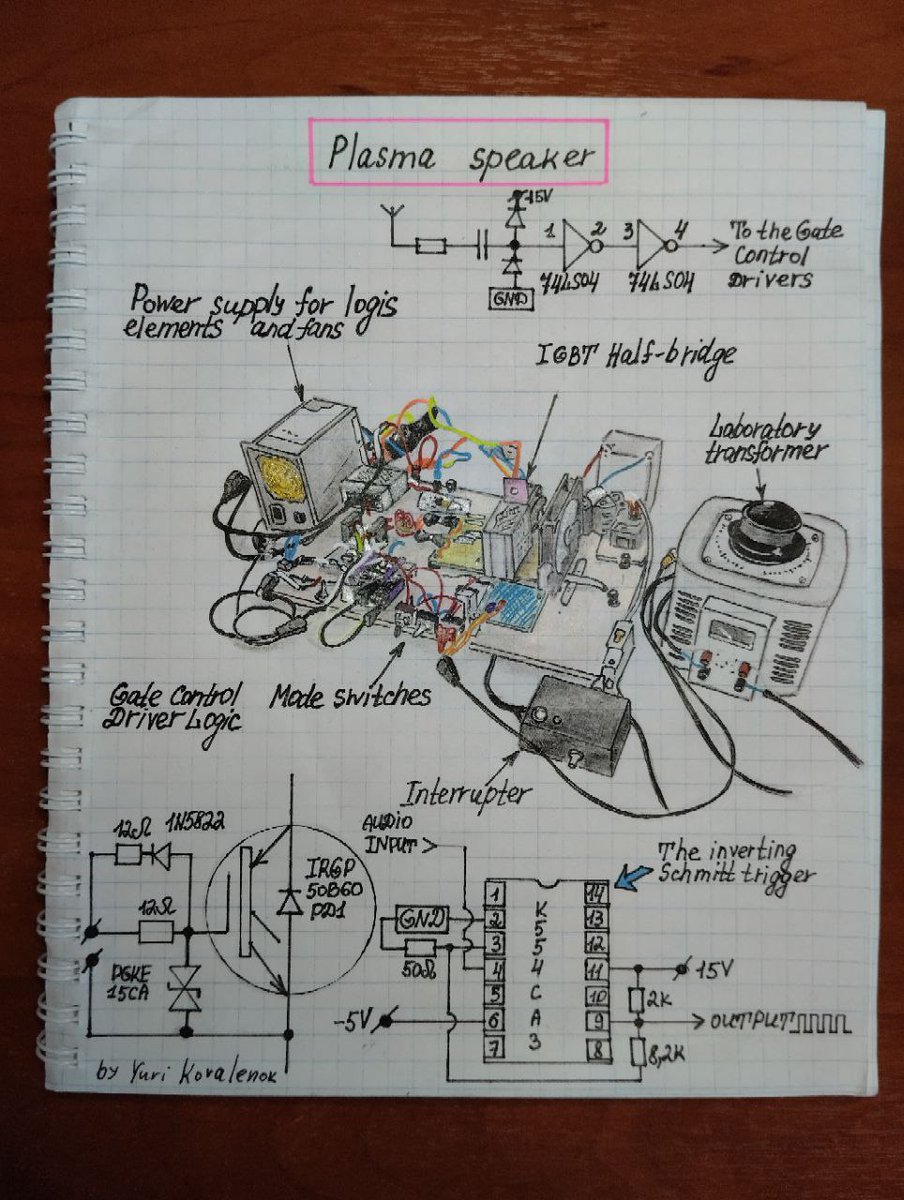 Plasma speaker
15V
1
2
3
4
74LS04
74LS04
GND
To the Gate
Control
Drivers
Power supply for logis
elements and fans
IGBT Half-bridge
Laboratory
transformer
Gate Control
Driver Logic
Mode switches
Interrupter
12Ω
1N5822
12Ω
P6KE
15CA
IRGP
50B60
PD1
AUDIO
INPUT >
The inverting
Schmitt trigger
GND
50Ω
-5V
1
2
3
4
5
6
7
К
5
5
4
С
А
3
14
13
12
11
10
9
8
15V
2K
OUTPUT
8,2K
by Yuri Kovalenok